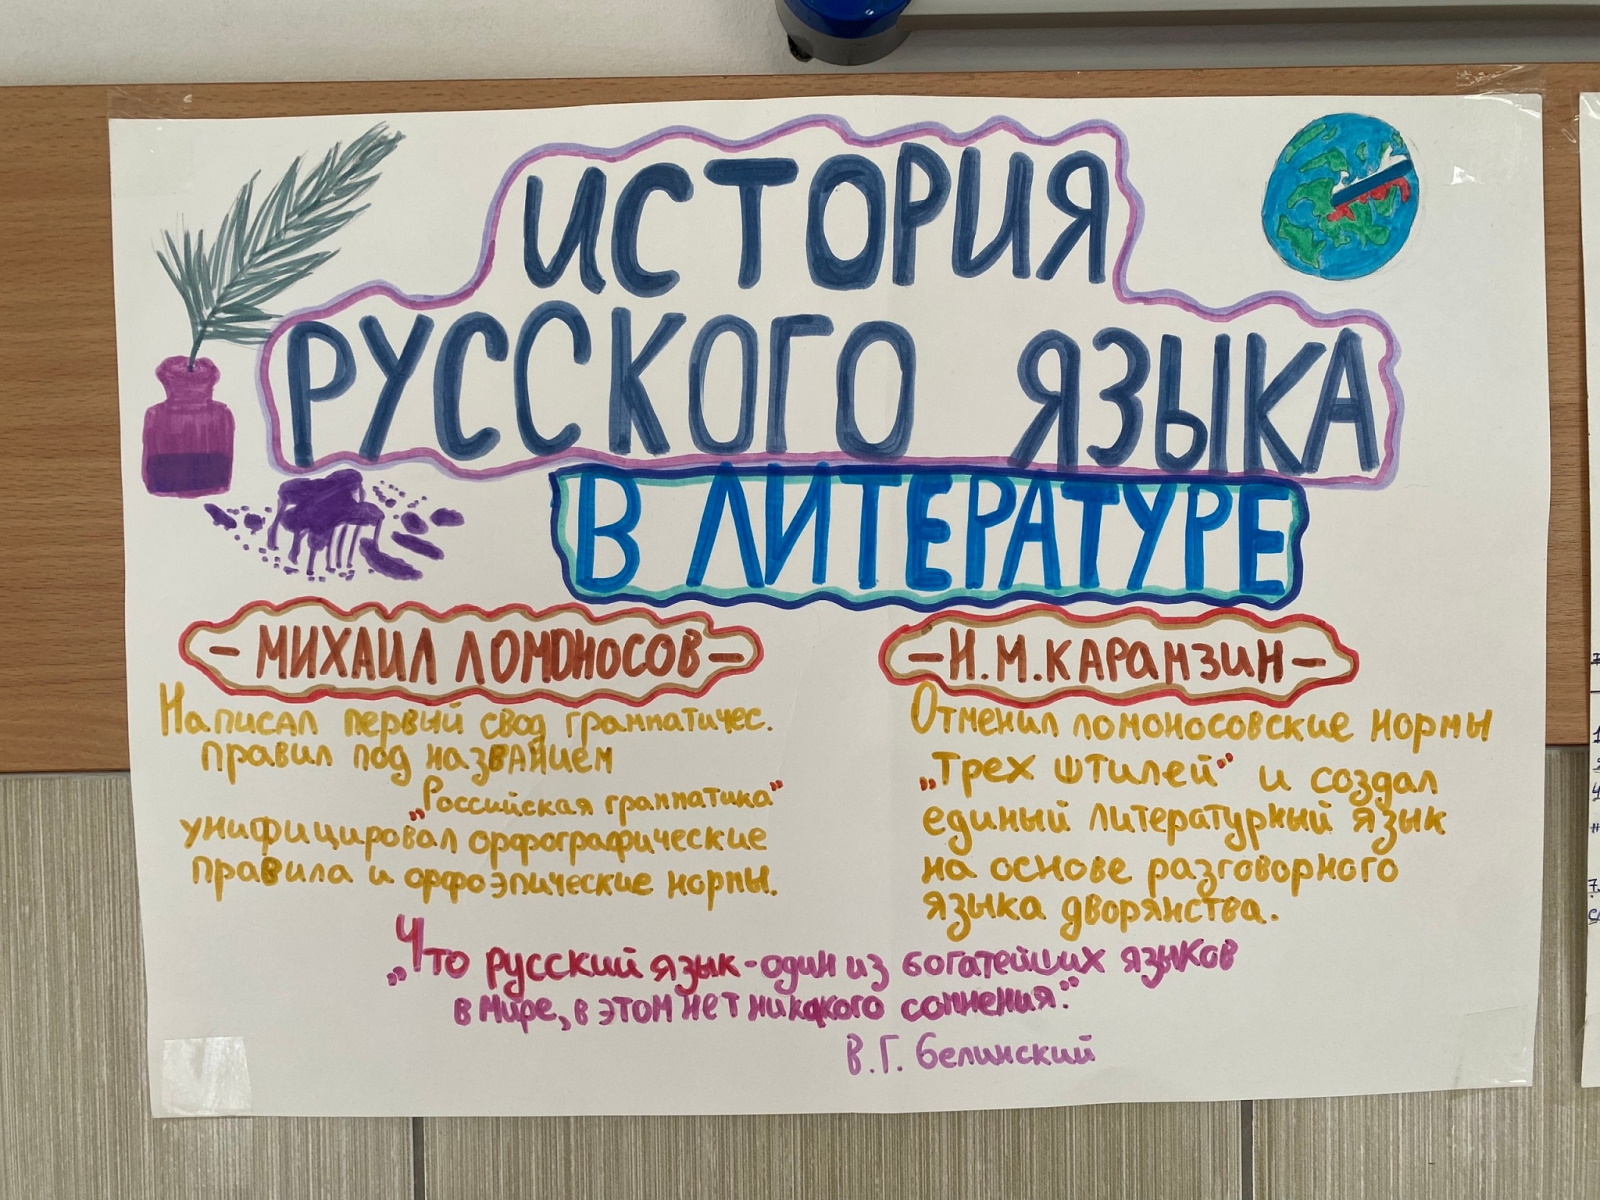 ИСТОРИЯ
РУССКОГО ЯЗЫКА
В ЛИТЕРАТУРЕ
- МИХАИЛ ЛОМОНОСОВ -
Написал первый свод грамматичес.
правил под названием
„Российская грамматика"
унифицировал орфографические
правила и орфоэпические нормы.
- Н.М.КАРАМЗИН -
Отменил ломоносовские нормы
„трех штилей" и создал
единый литературный язык
на основе разговорного
языка дворянства.
„Что русский язык-один из богатейших языков
в мире, в этом нет никакого сомнения."
В.Г. Белинский